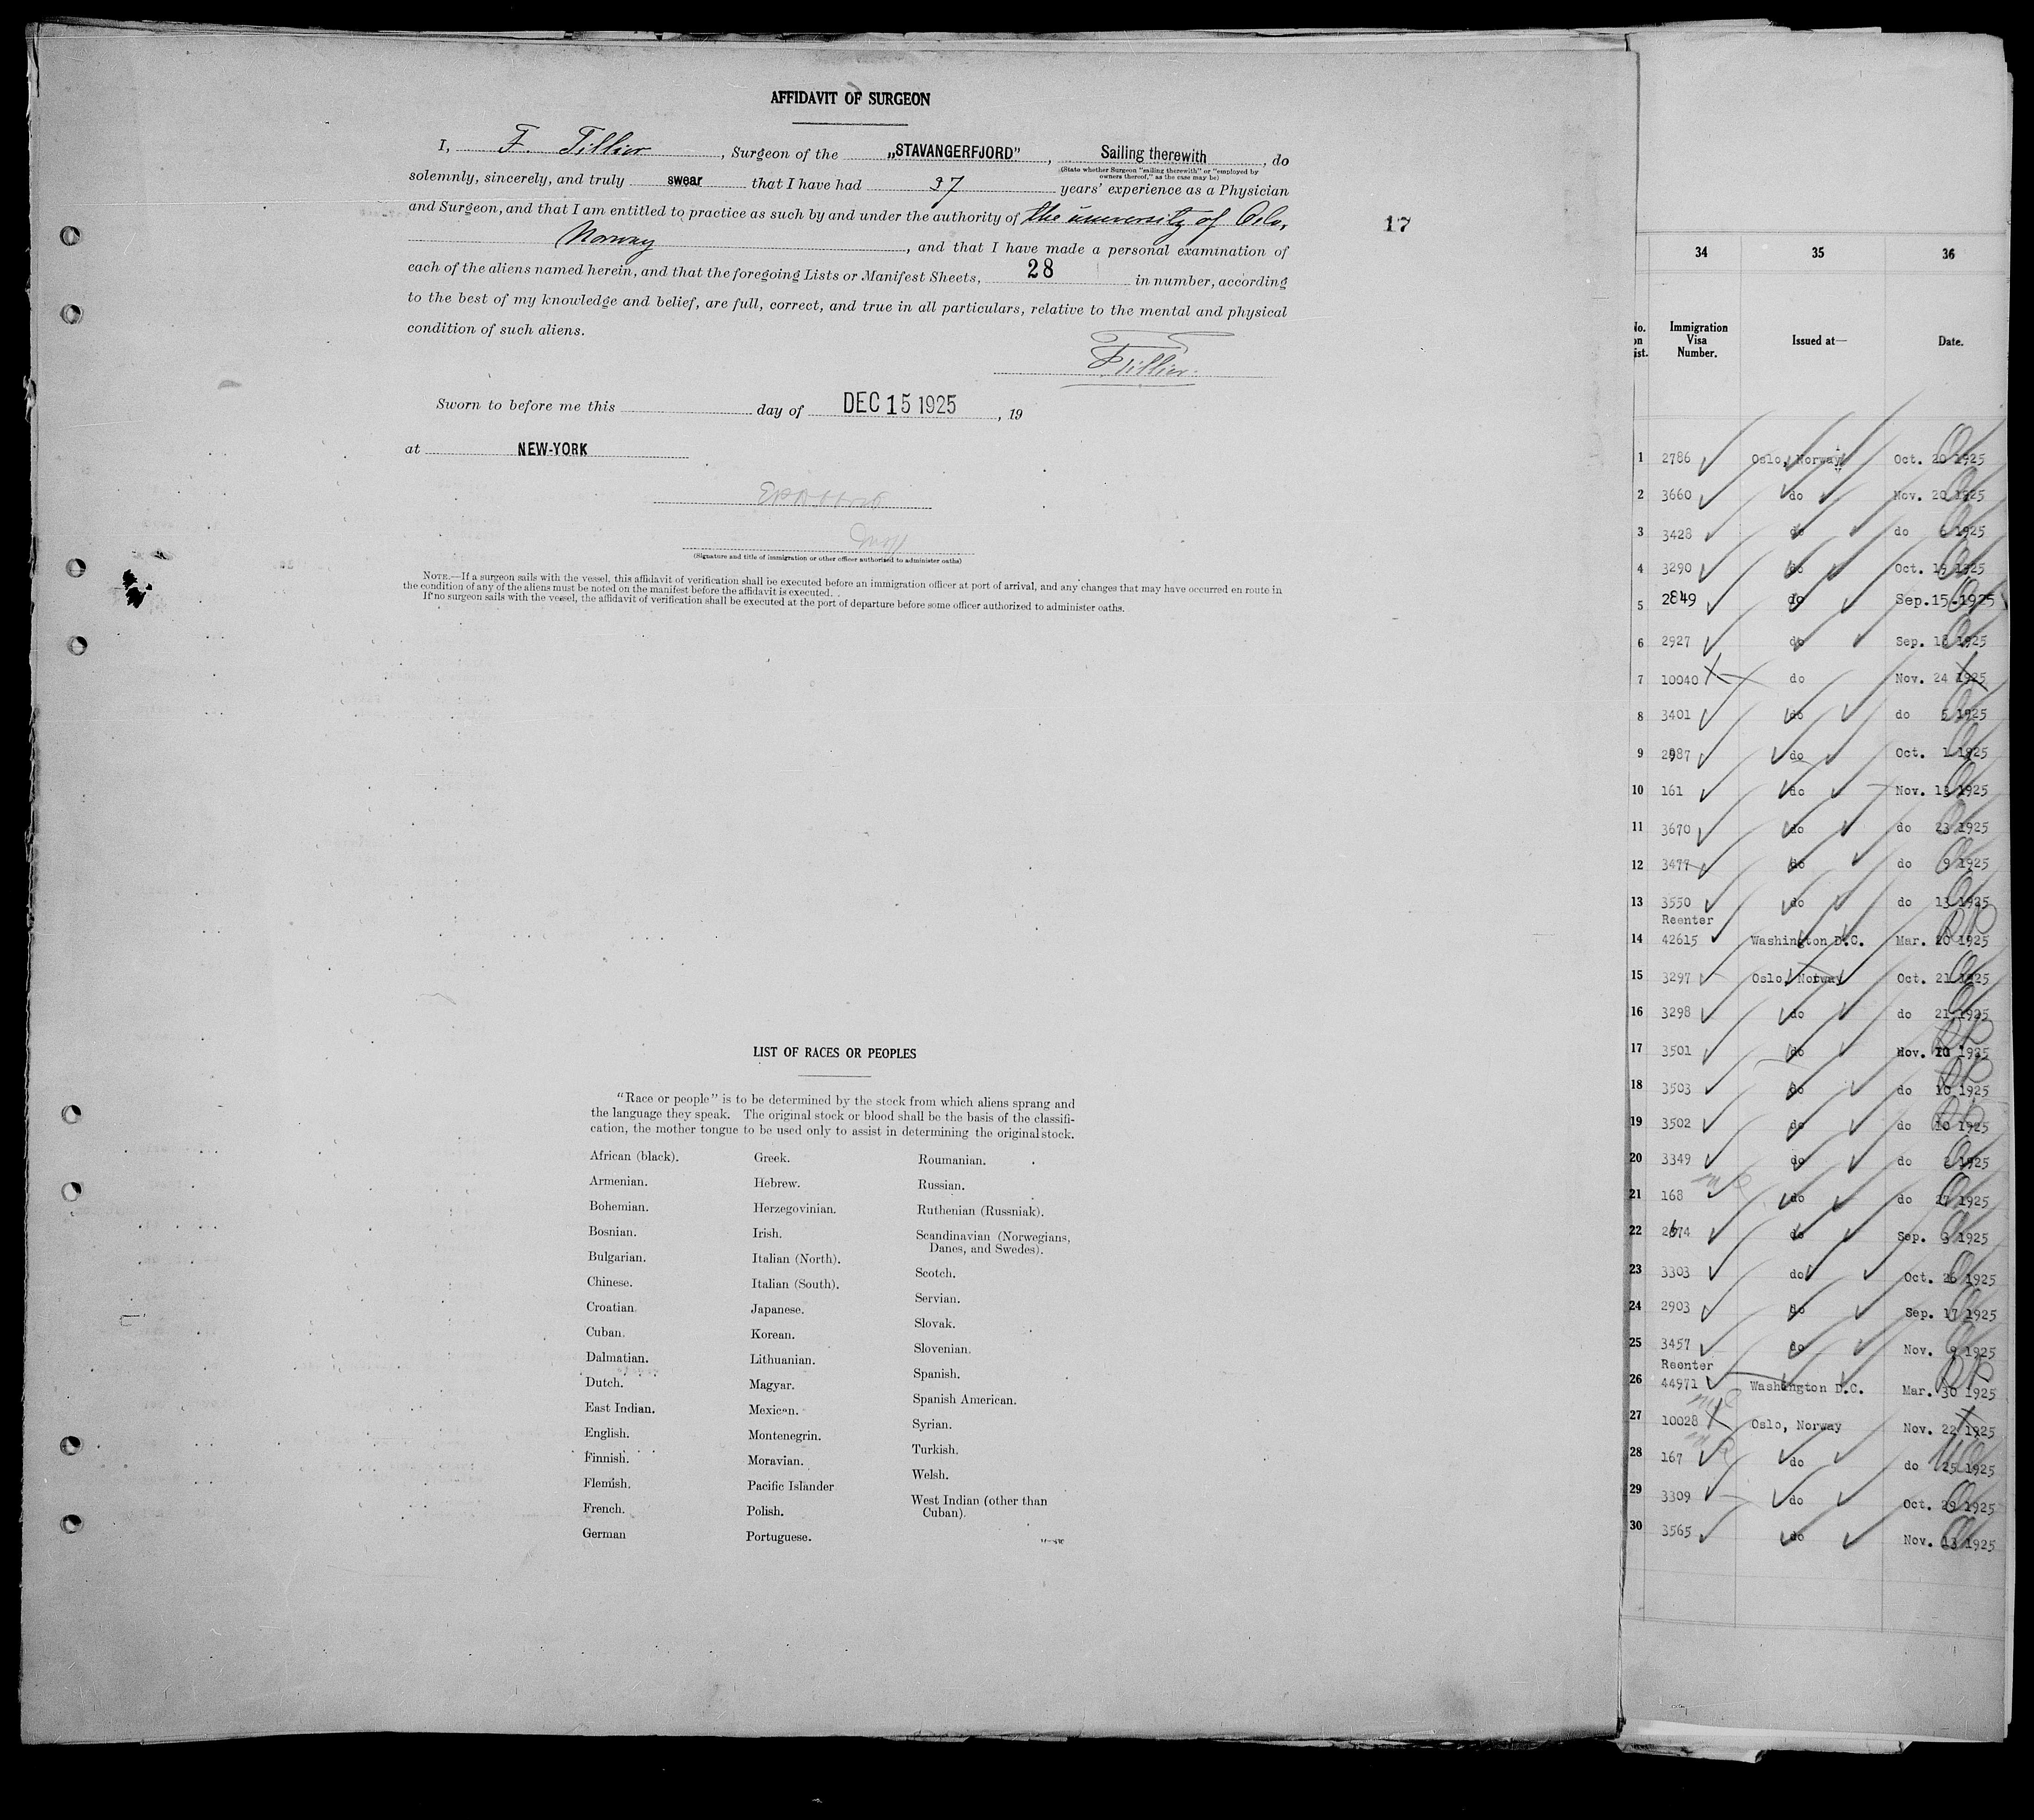 AFFIDAVIT OF SURGEON
I, F. Tillier, Surgeon of the „STAVANGERFJORD", Sailing therewith, do
(State whether Surgeon "sailing therewith" or "employed by
owners thereof," as the case may be)
solemnly, sincerely, and truly swear that I have had 37 years' experience as a Physician
and Surgeon, and that I am entitled to practice as such by and under the authority of the university of Oslo,
Norway, and that I have made a personal examination of
each of the aliens named herein, and that the foregoing Lists or Manifest Sheets, 28 in number, according
to the best of my knowledge and belief, are full, correct, and true in all particulars, relative to the mental and physical
condition of such aliens.
FTillier.
Sworn to before me this day of DEC 15 1925, 19
at NEW-YORK
(Signature and title of immigration or other officer authorized to administer oaths)
NOTE.—If a surgeon sails with the vessel, this affidavit of verification shall be executed before an immigration officer at port of arrival, and any changes that may have occurred en route in
the condition of any of the aliens must be noted on the manifest before the affidavit is executed.
If no surgeon sails with the vessel, the affidavit of verification shall be executed at the port of departure before some officer authorized to administer oaths.
17
LIST OF RACES OR PEOPLES
"Race or people" is to be determined by the stock from which aliens sprang and
the language they speak. The original stock or blood shall be the basis of the classifi-
cation, the mother tongue to be used only to assist in determining the original stock.
African (black).
Armenian.
Bohemian.
Bosnian.
Bulgarian.
Chinese.
Croatian.
Cuban.
Dalmatian.
Dutch.
East Indian.
English.
Finnish.
Flemish.
French.
German
Greek.
Hebrew.
Herzegovinian.
Irish.
Italian (North).
Italian (South).
Japanese.
Korean.
Lithuanian.
Magyar.
Mexican.
Montenegrin.
Moravian.
Pacific Islander
Polish.
Portuguese.
Roumanian.
Russian.
Ruthenian (Russniak).
Scandinavian (Norwegians,
Danes, and Swedes).
Scotch.
Servian.
Slovak.
Slovenian.
Spanish.
Spanish American.
Syrian.
Turkish.
Welsh.
West Indian (other than
Cuban).
34 35 36
No.
on
ist.
Immigration
Visa
Number.
Issued at—
Date.
1 2786 Oslo, Norway Oct. 20 1925
2 3660 do Nov. 20 1925
3 3428 do do 6 1925
4 3290 do Oct. 19 1925
5 2849 do Sep. 15. 1925
6 2927 do Sep. 18 1925
7 10040 do Nov. 24 1925
8 3401 do do 5 1925
9 2987 do Oct. 1 1925
10 161 do Nov. 13 1925
11 3670 do do 23 1925
12 3477 do do 9 1925
13 3550 do do 13 1925
Reenter
14 42615 Washington D.C. Mar. 20 1925
15 3297 Oslo, Norway Oct. 21 1925
16 3298 do do 21 1925
17 3501 do Nov. 10 1925
18 3503 do do 10 1925
19 3502 do do 10 1925
20 3349 do do 2 1925
21 168 do do 27 1925
22 2674 do Sep. 3 1925
23 3303 do Oct. 26 1925
24 2903 do Sep. 17 1925
25 3457 do Nov. 9 1925
Reenter
26 44971 Washington D.C. Mar. 30 1925
27 10028 Oslo, Norway Nov. 22 1925
28 167 do do 25 1925
29 3309 do Oct. 29 1925
30 3565 do Nov. 13 1925